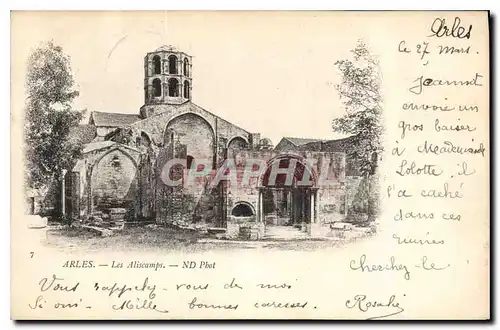 Arles
Ce 27 mars.
Jeannot
envoie un
gros baiser
à Mademois.
Lolotte, il
l'a caché
dans ces
ruines
Cherchez-le
CPARAMA
7
ARLES. — Les Aliscamps. — ND Phot
Vous rappelez vous de moi
Si on . — Mille bonnes caresses. Rosalie